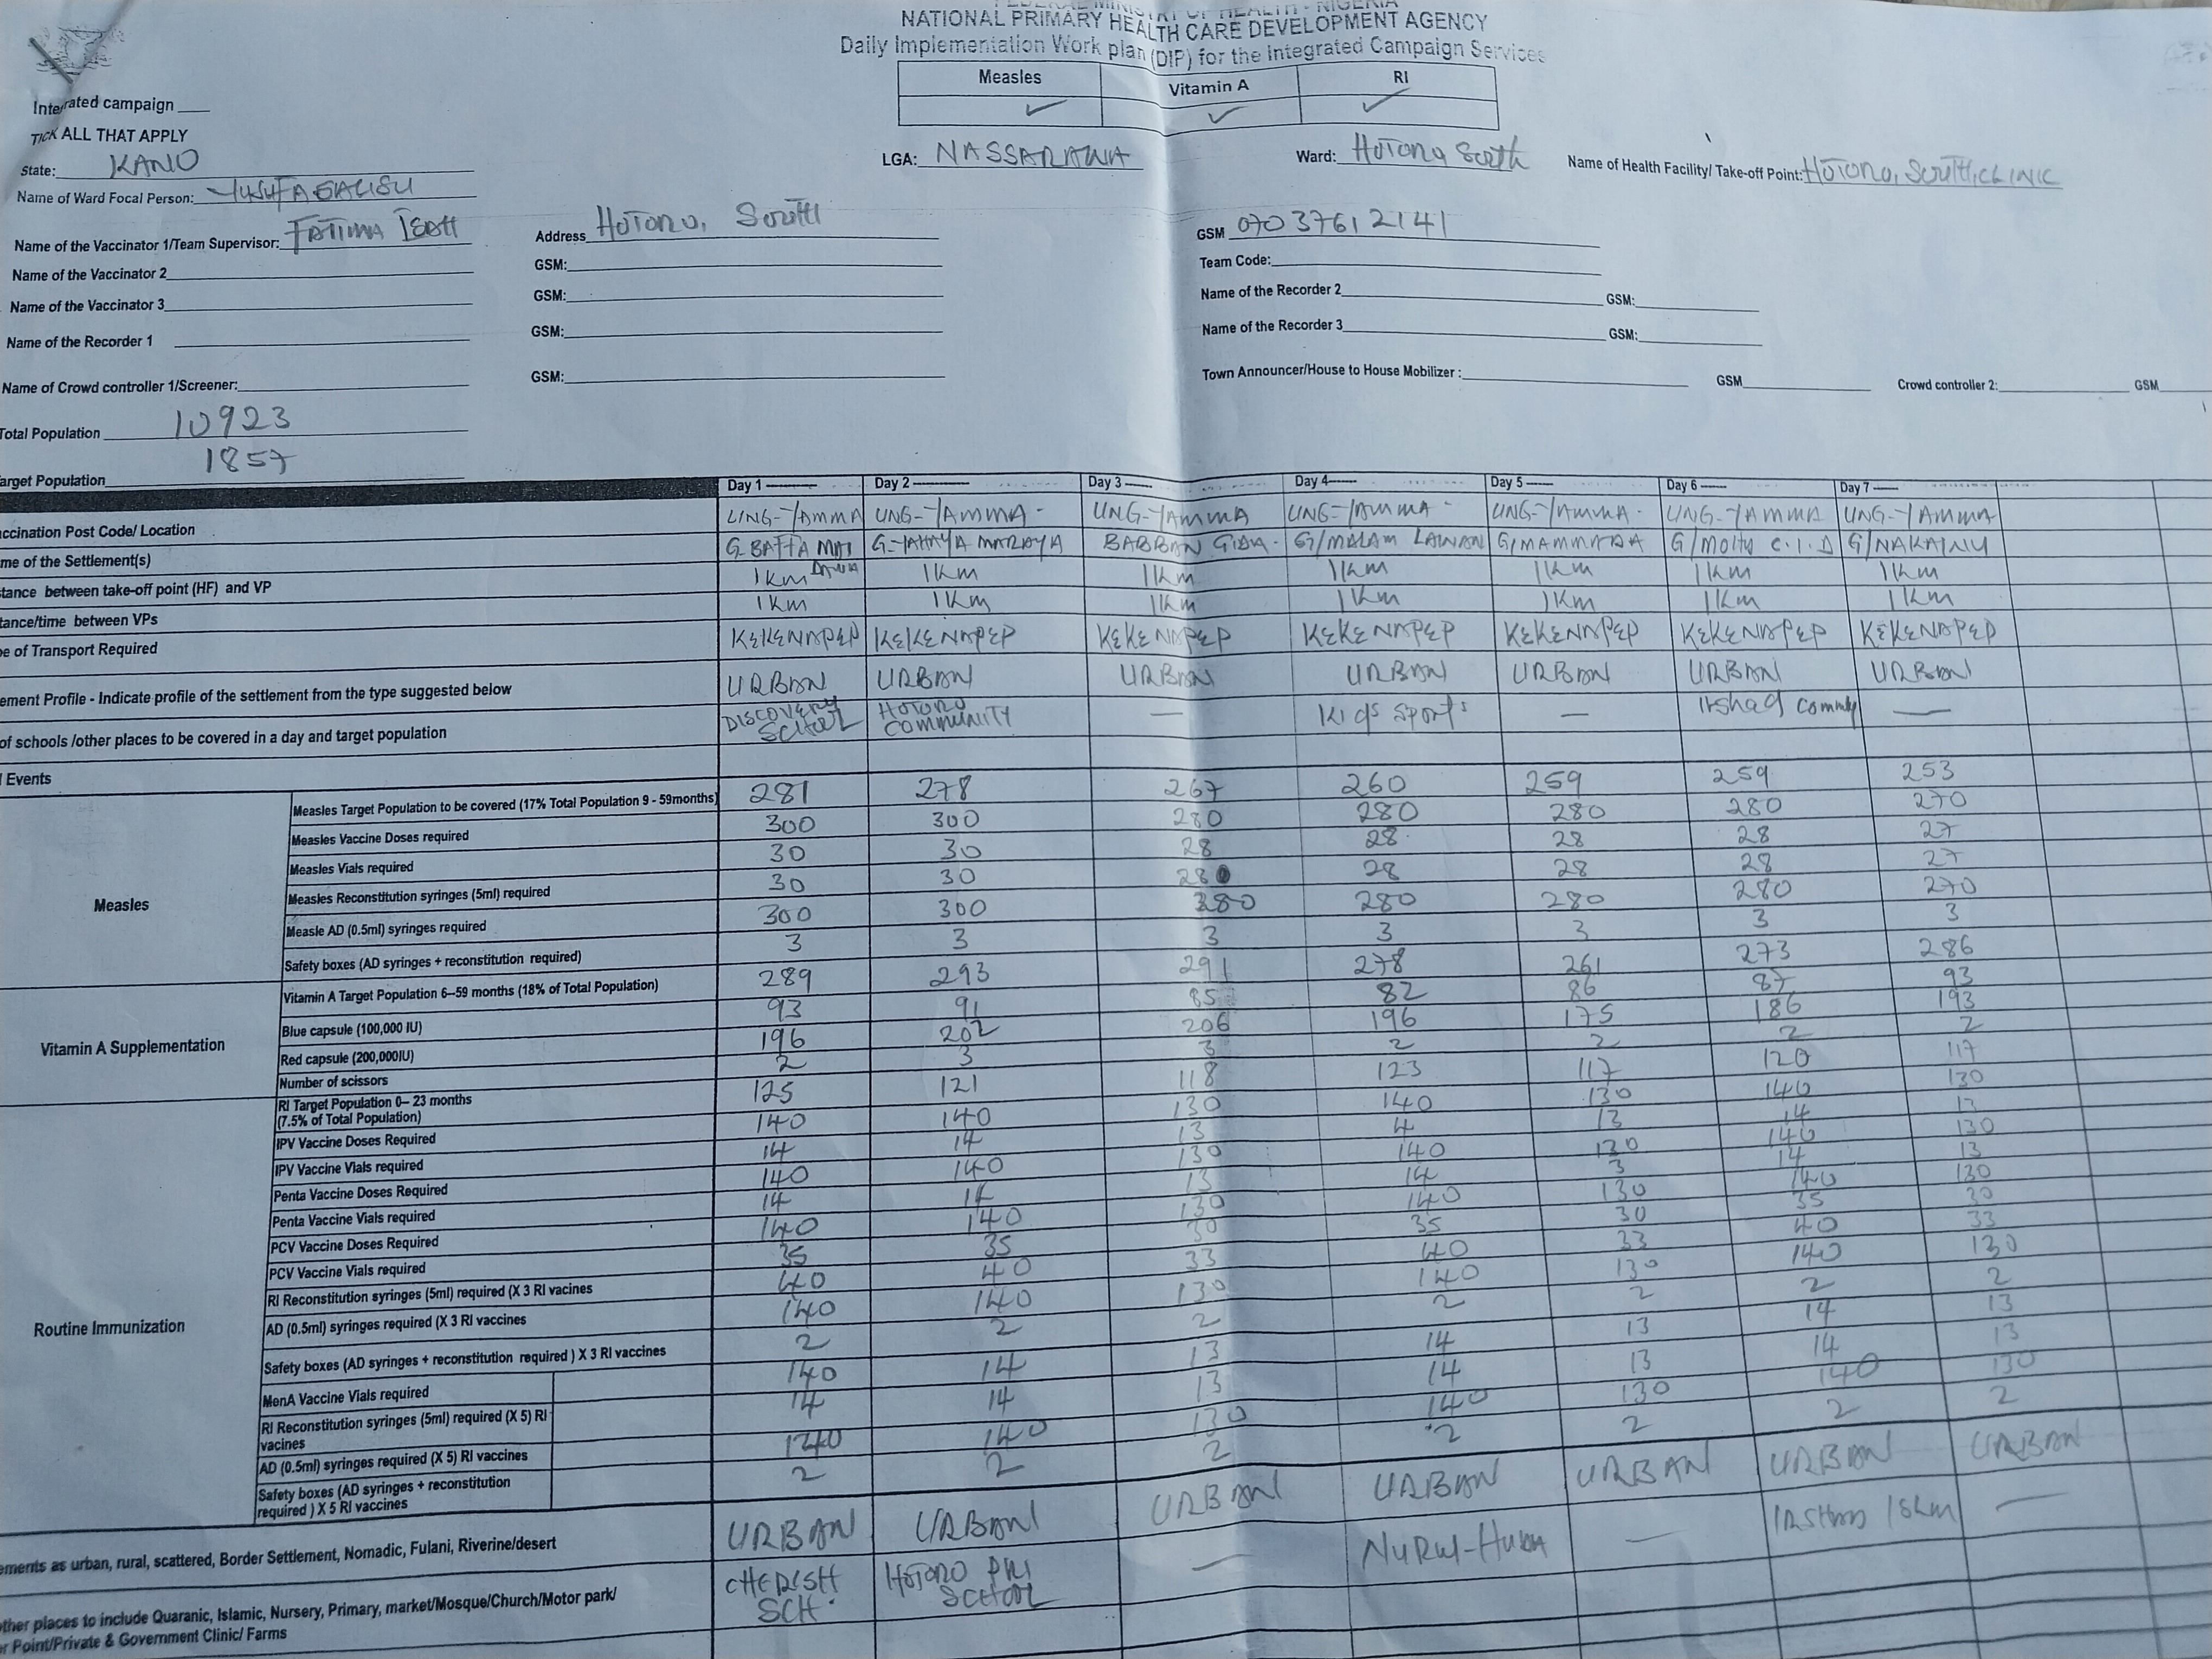 NATIONAL PRIMARY HEALTH CARE DEVELOPMENT AGENCY
Daily Implementation Work plan (DIP) for the Integrated Campaign Services
Measles Vitamin A RI
✓ ✓ ✓
Integrated campaign
TICK ALL THAT APPLY
State: KANO LGA: NASSARAWA Ward: Hotoro South Name of Health Facility/ Take-off Point: HOTORO, SOUTH CLINIC
Name of Ward Focal Person: Address Hotoro, South GSM 07037612141
Name of the Vaccinator 1/Team Supervisor: FATIMA GSM: Team Code:
Name of the Vaccinator 2 GSM: Name of the Recorder 2 GSM:
Name of the Vaccinator 3 GSM: Name of the Recorder 3 GSM:
Name of the Recorder 1
Name of Crowd controller 1/Screener: GSM: Town Announcer/House to House Mobilizer: GSM Crowd controller 2: GSM
Total Population 10923
Target Population 1857
Day 1 Day 2 Day 3 Day 4 Day 5 Day 6 Day 7
Vaccination Post Code/ Location
Name of the Settlement(s)
Distance between take-off point (HF) and VP 1km 1km 1km 1km 1km 1km 1km
Distance/time between VPs 1km 1km 1km 1km 1km 1km 1km
Type of Transport Required KEKENAPEP KEKENAPEP KEKENAPEP KEKENAPEP KEKENAPEP KEKENAPEP KEKENAPEP
Settlement Profile - Indicate profile of the settlement from the type suggested below URBAN URBAN URBAN URBAN URBAN URBAN URBAN
of schools /other places to be covered in a day and target population DISCOVERY SCHOOL HOTORO COMMUNITY — Kids Sport — Irshad —
Events
Measles
Measles Target Population to be covered (17% Total Population 9 - 59months) 281 278 267 260 259 259 253
Measles Vaccine Doses required 300 300 280 280 280 280 270
Measles Vials required 30 30 28 28 28 28 27
Measles Reconstitution syringes (5ml) required 30 30 28 28 28 28 27
Measle AD (0.5ml) syringes required 300 300 280 280 280 280 270
Safety boxes (AD syringes + reconstitution required) 3 3 3 3 3 3 3
Vitamin A Supplementation
Vitamin A Target Population 6–59 months (18% of Total Population) 289 293 291 278 261 273 286
Blue capsule (100,000 IU) 93 91 85 82 86 87 93
Red capsule (200,000IU) 196 202 206 196 175 186 193
Number of scissors 2 3 3 2 2 2 2
Routine Immunization
RI Target Population 0– 23 months (7.5% of Total Population) 125 121 118 123 117 120 117
IPV Vaccine Doses Required 140 140 130 140 130 140 130
IPV Vaccine Vials required 14 14 13 4 13 14 13
Penta Vaccine Doses Required 140 140 130 140 130 140 130
Penta Vaccine Vials required 14 14 13 14 3 14 13
PCV Vaccine Doses Required 140 140 130 140 130 140 130
PCV Vaccine Vials required 35 35 30 35 30 35 30
RI Reconstitution syringes (5ml) required (X 3 RI vacines 40 40 33 40 33 40 33
AD (0.5ml) syringes required (X 3 RI vaccines 140 140 130 140 130 140 130
Safety boxes (AD syringes + reconstitution required ) X 3 RI vaccines 2 2 2 2 2 2 2
MenA Vaccine Vials required 140 14 13 14 13 14 13
RI Reconstitution syringes (5ml) required (X 5) RI vaccines 14 14 13 14 13 14 13
AD (0.5ml) syringes required (X 5) RI vaccines 140 140 130 140 130 140 130
Safety boxes (AD syringes + reconstitution required ) X 5 RI vaccines 2 2 2 2 2 2 2
URBAN URBAN URBAN URBAN URBAN URBAN URBAN
CHERISH SCH. HOTORO PRI SCHOOL — Nurul-Huda — —
ements as urban, rural, scattered, Border Settlement, Nomadic, Fulani, Riverine/desert
ther places to include Quaranic, Islamic, Nursery, Primary, market/Mosque/Church/Motor park/
r Point/Private & Government Clinic/ Farms